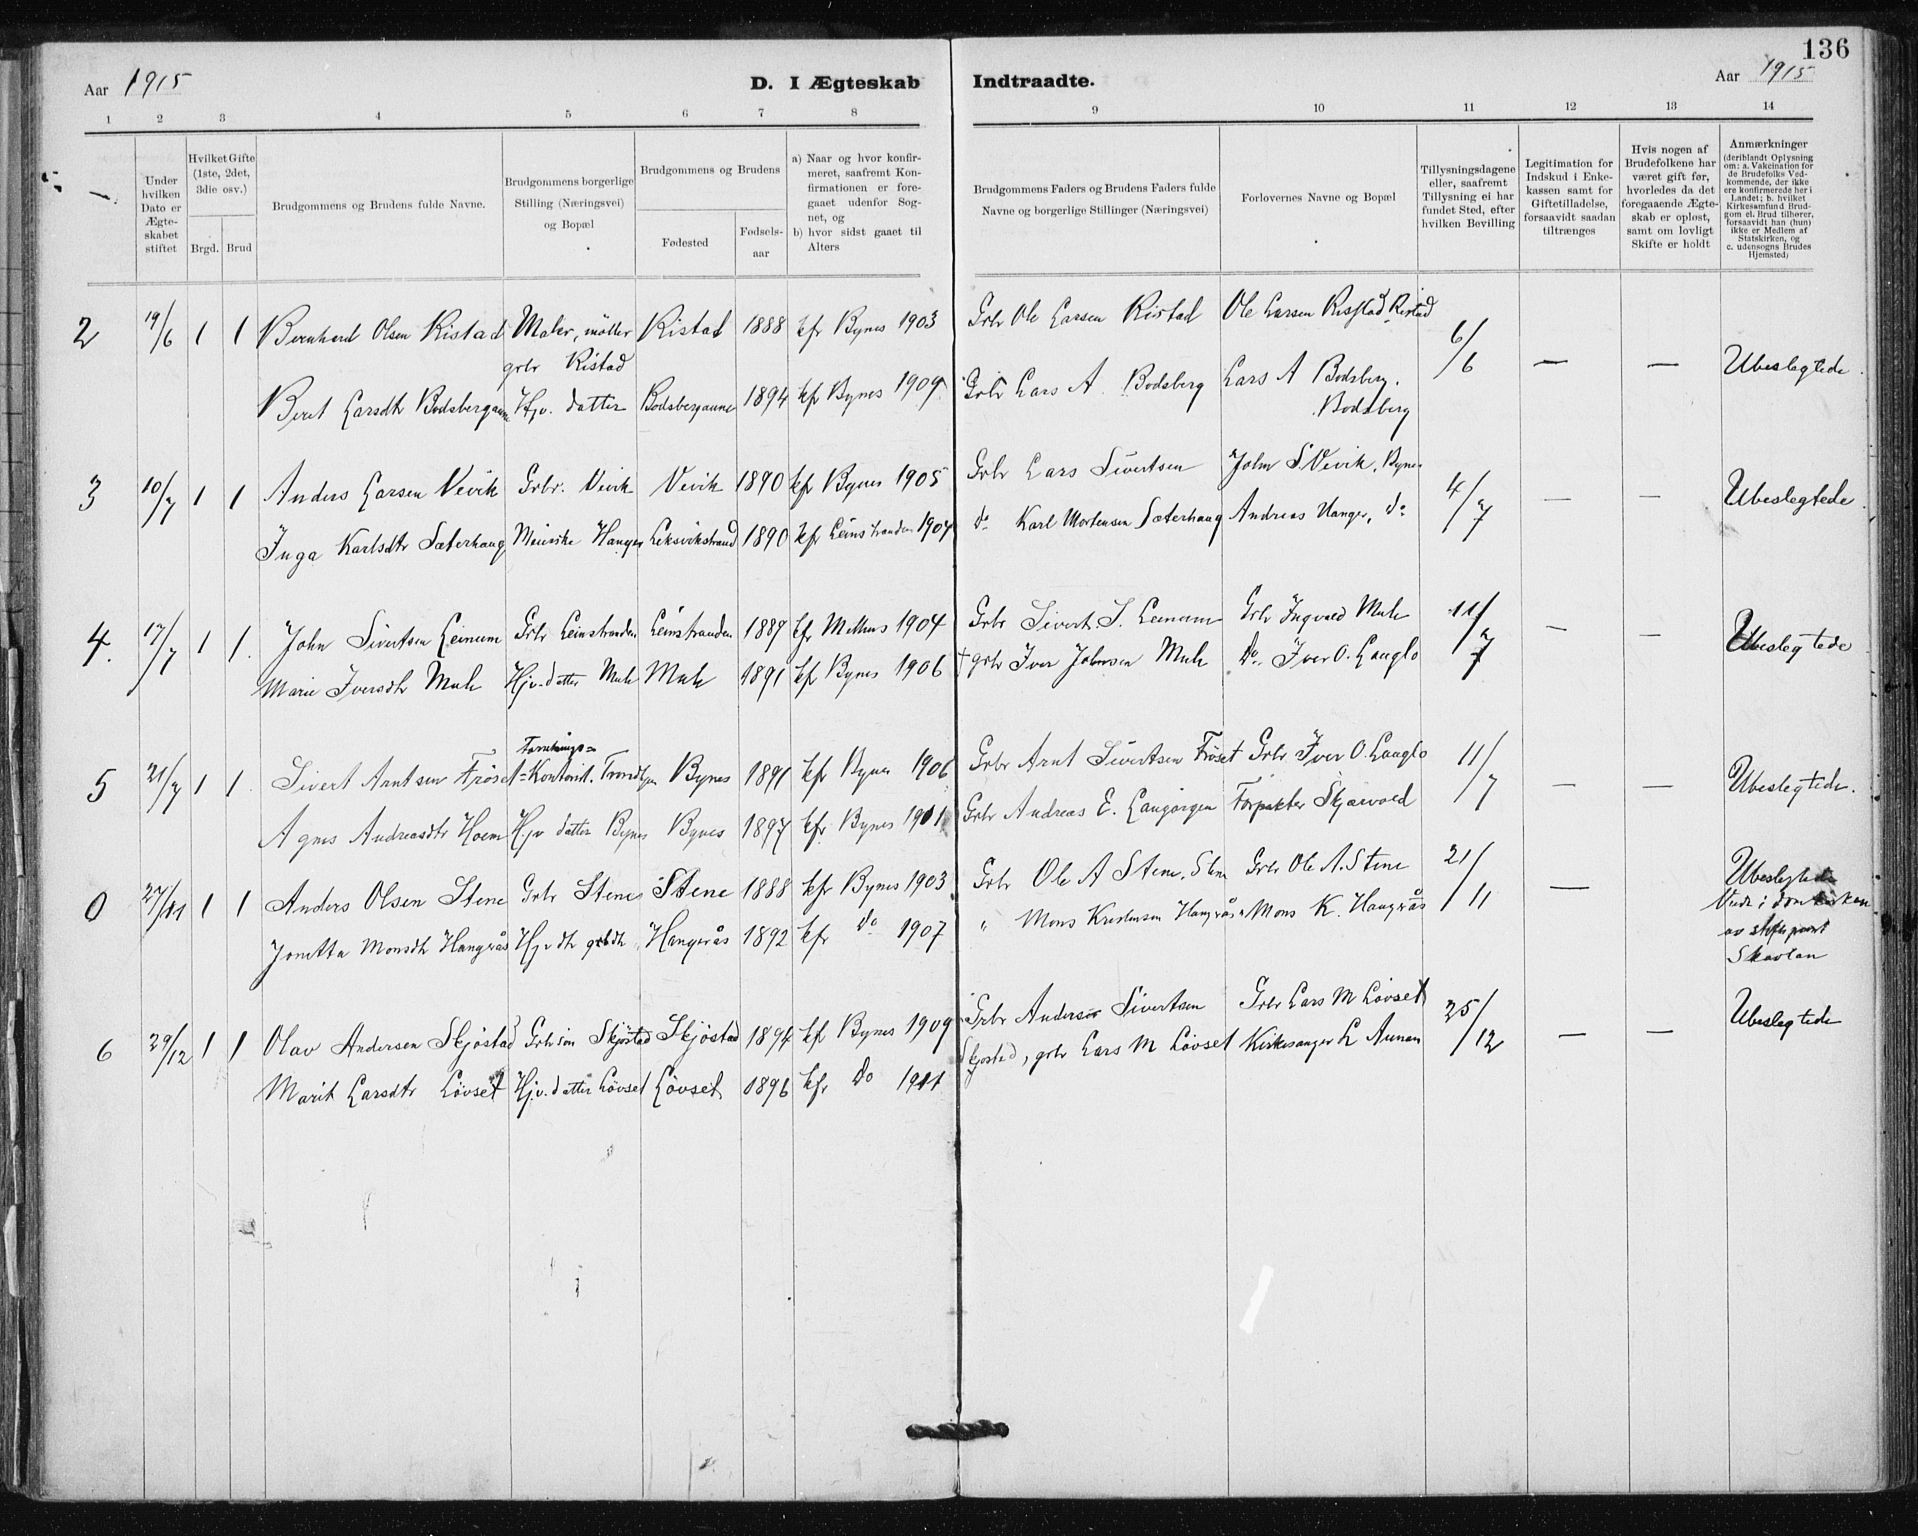 136
Aar 1915
D. I Ægteskab Indtraadte.
Aar 1915
1 2 3 4 5 6 7 8 9 10 11 12 13 14
Under hvilken Dato er Ægteskabet stiftet
Hvilket Gifte (1ste, 2det, 3die osv.)
Brgd. Brud
Brudgommens og Brudens fulde Navne.
Brudgommens borgerlige Stilling (Næringsvei) og Bopæl
Brudgommens og Brudens
Fødested
Fødsels-aar
a) Naar og hvor konfirmeret, saafremt Konfirmationen er foregaaet udenfor Sognet, og
b) hvor sidst gaaet til Alters
Brudgommens Faders og Brudens Faders fulde Navne og borgerlige Stillinger (Næringsvei)
Forlovernes Navne og Bopæl
Tillysningsdagene eller, saafremt Tillysning ei har fundet Sted, efter hvilken Bevilling
Legitimation for Indskud i Enkekassen samt for Giftetilladelse, forsaavidt saadan tiltrænges
Hvis nogen af Brudefolkene har været gift før, hvorledes da det foregaaende Ægteskab er opløst, samt om lovligt Skifte er holdt
Anmærkninger
(deriblandt Oplysning om: a. Vakcination for de Brudefolks Vedkommende, der ikke ere konfirmerede her i Landet; b. hvilket Kirkesamfund Brudgom el. Brud tilhører, forsaavidt han (hun) ikke er Medlem af Statskirken, og c. udensogns Brudes Hjemsted)
2 19/6 1 1 Bernhard Olsen Ristad Maler, møller Ristad 1888 kfr Bynes 1903 Grbr Ole Larsen Ristad Ole Larsen Ristad Ristad 6/6 — — Ubeslegtede
grbr Ristad
Beret Larsdtr Bodsbergaune Hjv. datter Bodsbergaune 1894 kfr Bynes 1909 Grbr Lars A. Bodsberg Lars A Bodsberg.
Bodsberg
3 10/7 1 1 Anders Larsen Vevik Grbr. Vevik Vevik 1890 kfr Bynes 1905 Grbr Lars Sivertsen John S. Vevik, Bynes 4/7 — — Ubeslegtede
Inga Karlsdtr Sæterhaug Meierske Hanger Leksvikstrand 1890 kfr Leinstranden 1904 do Karl Mortensen Sæterhaug Andreas Hanger, do
4. 17/7 1 1. John Sivertsen Leinum Grbr Leinstranden Leinstranden 1887 kfr Melhus 1904 Grbr Sivert. S. Leinum Grbr Ingvald Mule 11/7 — — Ubeslegtede
Marie Iversdtr Mule Hjv. datter Mule Mule 1891 kfr Bynes 1906 † grbr Iver Johnsen Mule Do. Iver O. Langlo
Forretnings=
5 21/7 1 1. Sivert Arntsen Frøset Kontorist. Trondhjem Bynes 1891 kfr Bynes 1906 Grbr Arnt Sivertsen Frøset Grbr Iver O. Langlo 11/7 — — Ubeslegtede.
Agnes Andreasdtr Hoem Hjv datter Bynes Bynes 1897 kfr Bynes 1911 Grbr Andreas E. Langørgen Forpakter Skjærvold
0 27/11 1 1 Anders Olsen Stene Grbr Stene Stene 1888 kfr Bynes 1903 Grbr Ole A Stene, Stene Grbr Ole A. Stene 21/11 — Ubeslegtede
Viede i domkirken
av stiftsprovst
Skavlan
Jonetta Monsdtr Hangrås Hjv dtr grbdtr Hangrås 1892 kfr do 1907 " Mons Kristensen Hangrås " Mons K. Hangrås
6 29/12 1 1 Olav Andersen Skjøstad Grbr søn Skjøstad Skjøstad 1894 kfr Bynes 1909 Grbr Anders Sivertsen Grbr Lars M Løvset 25/12 — — Ubeslegtede
Marit Larsdtr Løvset Hjv. datter Løvset Løvset 1896 kfr do 1911 Skjøstad, grbr Lars M Løvset Kirkesanger L Aunan